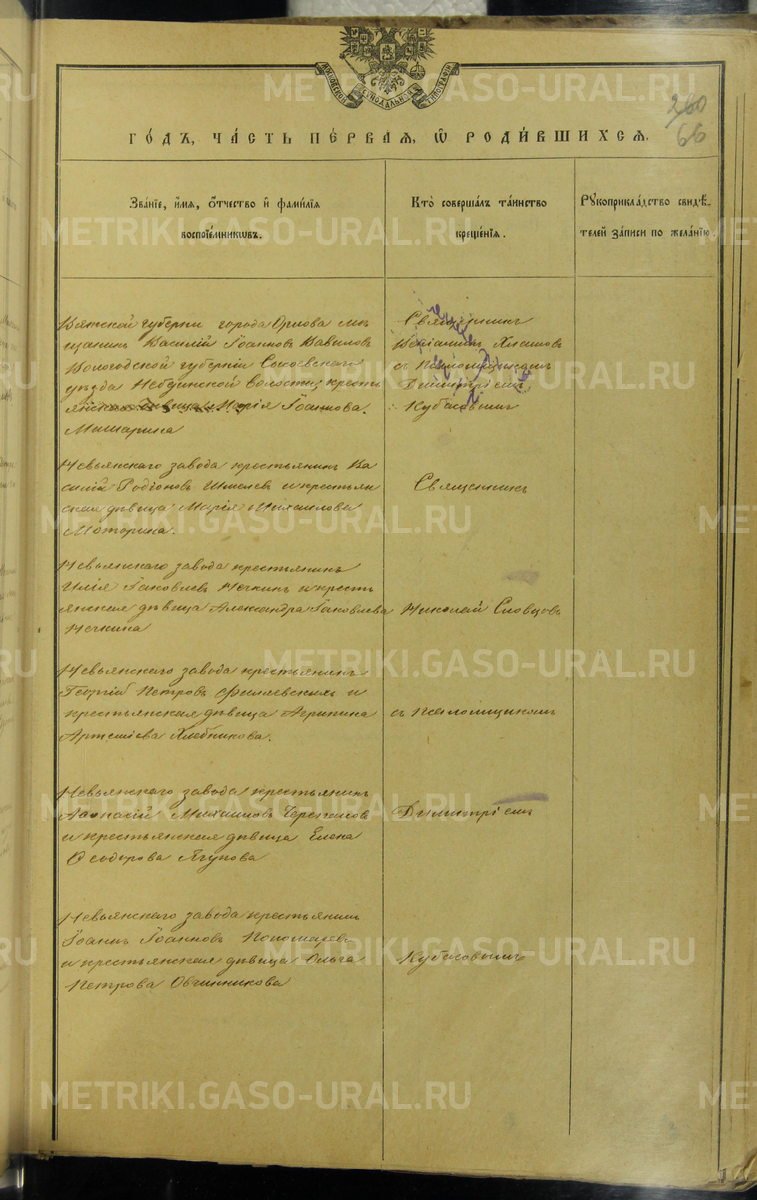 МОСКОВСКОЙ СѴНОДАЛЬНОЙ ТИПОГРАФІИ
260
66
ГО́ДЪ, ЧА́СТЬ ПЕ́РВАѦ, Ѡ҆ РОДИ́ВШИХСѦ.
Зва́нїе, и҆́мѧ, ѻ҆́тчество и҆ фами́лїѧ
воспрїе́мникѡвъ.
Кто̀ соверша́лъ та́инство
креще́нїѧ.
Рꙋкоприкла́дство свидѣ́-
телей за́писи по жела́нїю.
Вятской губерни города Орлова мѣ
щанинъ Василій Іоанновъ Вавиловъ
Вологодской губерніи
уѣзда волости крестъ
янская дѣвица Марія Іоаннова
Мишарина
Священникъ
Веніаминъ Хлыновъ
съ Псаломщикомъ
Димитріемъ
Кубасовымъ
Невьянскаго завода крестьянинъ Ва
силій Родіоновъ Шмелевъ и крестьян
ская дѣвица Марія Михаилова
Маторина.
Священникъ
Невьянскаго завода крестьянинъ
Илія Іаковлевъ Нечкинъ и кресть
янская дѣвица Александра Іаковлева
Нечкина
Николай Словцовъ
Невьянскаго завода крестьянинъ
Георгій Петровъ и
крестьянская дѣвица Агрипина
Артеміева Хлебникова.
съ Псаломщикомъ
Невьянскаго завода крестьянинъ
Афанасій Михаиловъ
и крестьянская дѣвица Елена
Ѳеодорова Ягупова
Димитріемъ
Невьянскаго завода крестьянинъ
Іоаннъ Іоанновъ Пономаревъ
и крестьянская дѣвица Ольга
Петрова Овчинникова
Кубасовымъ
METRIKI.GASO-URAL.RU